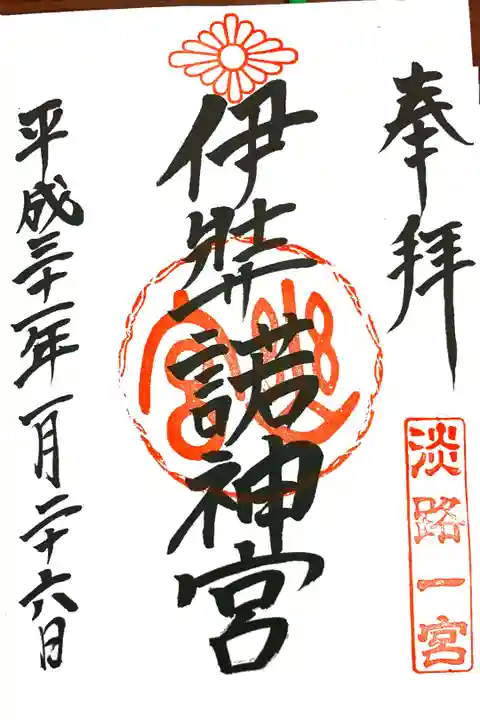 奉拝
淡路一宮
伊弉諾神宮
平成三十一年一月二十六日